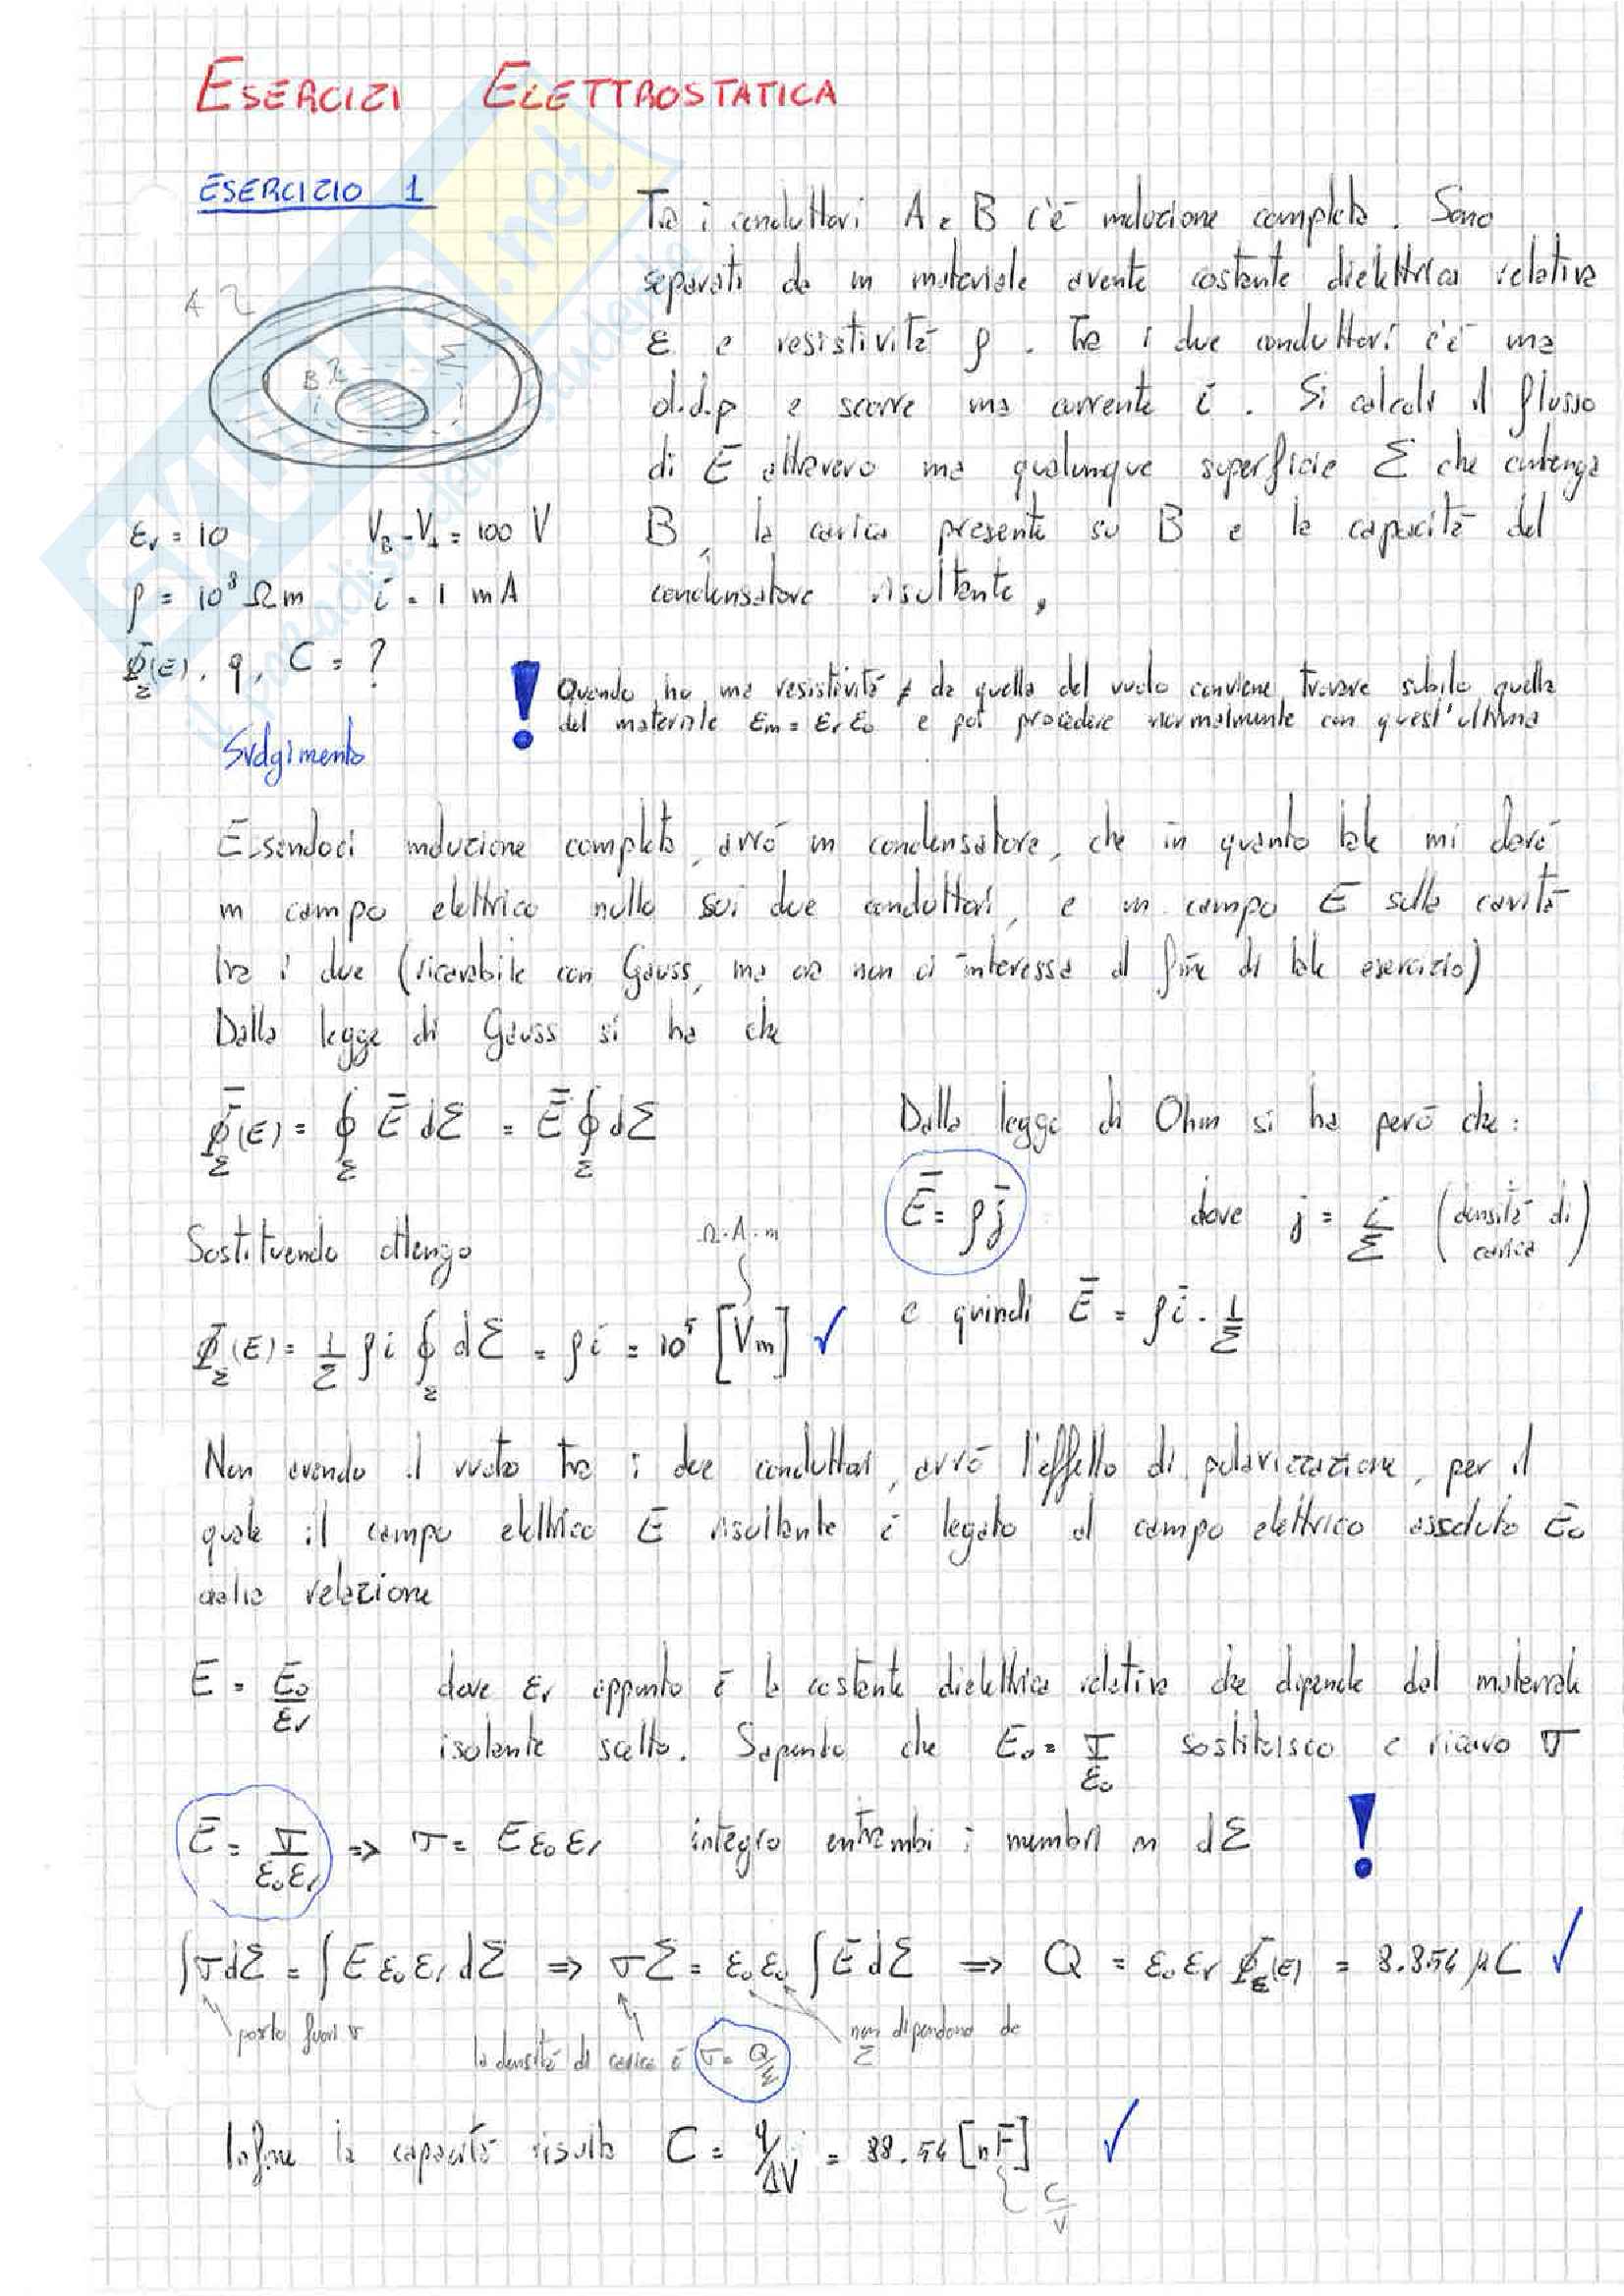 ESERCIZI ELETTROSTATICA
ESERCIZIO 1
Tra i conduttori A e B c'è induzione completa. Sono
separati da un materiale avente costante dielettrica relativa
εr e resistività ρ. Tra i due conduttori c'è una
d.d.p e scorre una corrente i. Si calcoli il flusso
di E attraverso una qualunque superficie Σ che contenga
B, la carica presente su B e la capacità del
condensatore risultente.
A
B
Σ
εr = 10 VB - VA = 100 V
ρ = 10⁸ Ωm i = 1 mA
ΦΣ(E), q, C = ?
! Quando ho una resistività ≠ da quella del vuoto conviene trovare subito quella
del materiale εm = εr ε0 e poi procedere normalmente con quest'ultima
Svolgimento
Essendoci induzione completa, avrò un condensatore, che in quanto tale mi darà
un campo elettrico nullo sui due conduttori, e un campo E sulla cavità
tra i due (ricavabile con Gauss, ma ora non ci interessa al fine di tale esercizio)
Dalla legge di Gauss si ha che
Φ̄Σ(E) = ∮Σ Ē dΣ = Ē ∮Σ dΣ
Dalla legge di Ohm si ha però che:
Ē = ρj̄ dove j = i/Σ (densità di carica)
e quindi Ē = ρi · 1/Σ
Sostituendo ottengo
Ω·A·m
ΦΣ(E) = 1/Σ ρi ∮Σ dΣ = ρi = 10⁵ [Vm] ✓
Non avendo il vuoto tra i due conduttori, avrò l'effetto di polarizzazione, per il
quale il campo elettrico E risultante è legato al campo elettrico assoluto E0
dalla relazione
E = E0/εr dove εr appunto è la costante dielettrica relativa che dipende dal materiale
isolante scelto. Sapendo che E0 = σ/ε0 sostituisco e ricavo σ
E = σ/ε0εr => σ = E ε0 εr integro entrambi i membri in dΣ !
∫σdΣ = ∫E ε0 εr dΣ => σΣ = ε0 ε0 ∫E dΣ => Q = ε0 εr ΦΣ(E) = 8.854 μC ✓
porto fuori σ
la densità di carica è σ = Q/Σ
non dipendono da
Σ
Infine la capacità risulta C = q/ΔV = 88.54 [nF] ✓
C/V